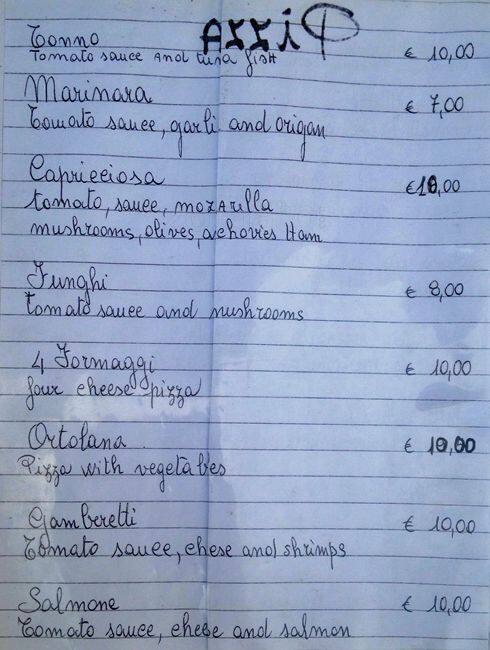 AZZiP
Tonno € 10,00
Tomato sauce And tuna fisH
Marinara € 7,00
Tomato sauce, garli and origan
Capricciosa €10,00
tomato, sauce, mozArella
mushrooms, olives, achovies Ham
Funghi € 8,00
tomato sauce and mushrooms
4 Formaggi € 10,00
four cheese pizza
Ortolana € 10,00
Pizza with vegetables
Gamberetti € 10,00
Tomato sauce, chese and shrimps
Salmone € 10,00
Tomato sauce, chese and salmon